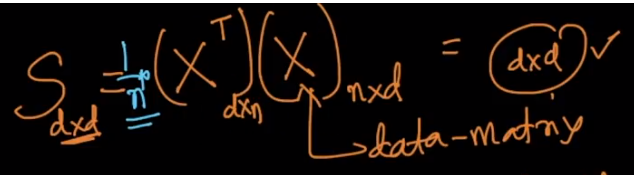 S dxd = 1/n (X^T) dxn (X) nxd = (dxd) ✓
data-matrix